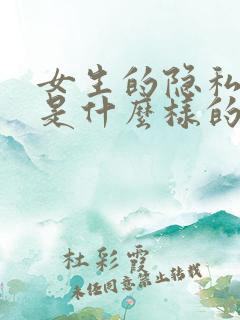 女生的隐私
是什麽样的
杜彩霞
未经同意禁止转载